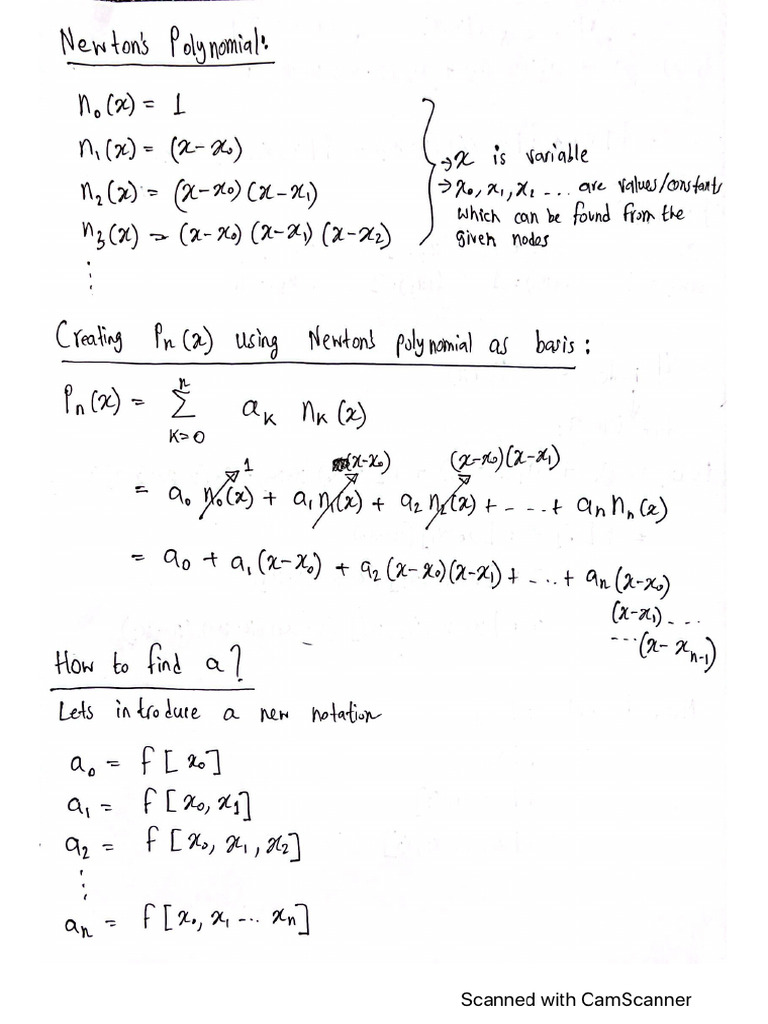 Newton's Polynomial:
n₀(x) = 1
n₁(x) = (x-x₀)
n₂(x) = (x-x₀)(x-x₁)
n₃(x) = (x-x₀)(x-x₁)(x-x₂)
⋮
→ x is variable
→ x₀, x₁, x₂ ... are values/constants
which can be found from the
given nodes
Creating Pn(x) using Newton's polynomial as basis:
Pn(x) = Σ_{k=0}^{n} a_k n_k(x)
1 (x-x₀) (x-x₀)(x-x₁)
= a₀ n₀(x) + a₁ n₁(x) + a₂ n₂(x) + - ... + aₙ nₙ(x)
= a₀ + a₁(x-x₀) + a₂(x-x₀)(x-x₁) + - ... + aₙ(x-x₀)
(x-x₁)....
...(x-xₙ₋₁)
How to find a?
Lets introduce a new notation
a₀ = f[x₀]
a₁ = f[x₀, x₁]
a₂ = f[x₀, x₁, x₂]
⋮
aₙ = f[x₀, x₁ ... xₙ]
Scanned with CamScanner